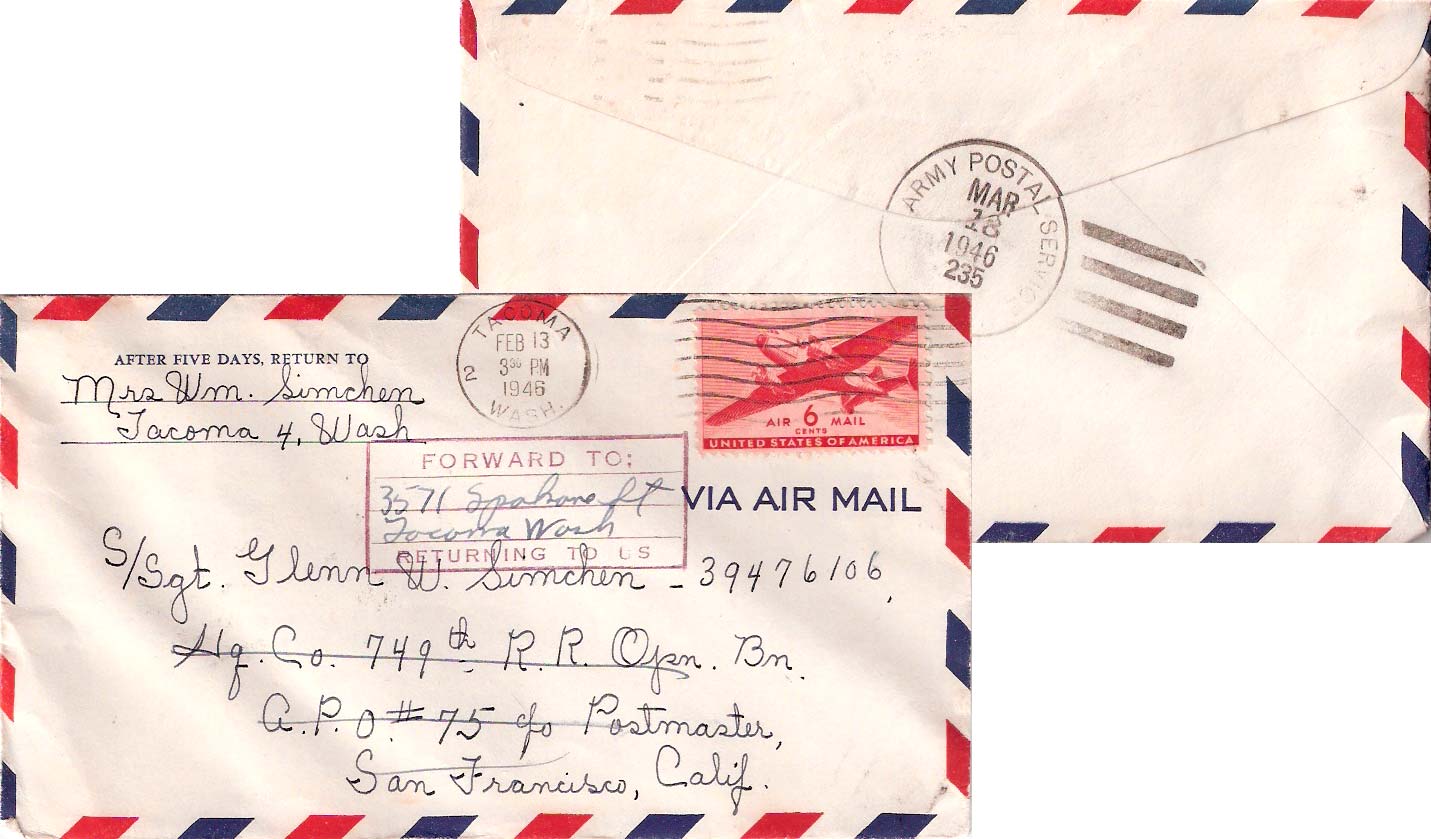 ARMY POSTAL SERVIC
MAR
18
1946
235
TACOMA
FEB 13
3 30 PM
1946
2
WASH.
AFTER FIVE DAYS, RETURN TO
Mrs Wm. Simchen
Tacoma 4, Wash
AIR 6 MAIL
CENTS
UNITED STATES OF AMERICA
FORWARD TO:
3571 Spokane St
Tacoma Wash
RETURNING TO US
VIA AIR MAIL
S/Sgt. Glenn W. Simchen - 39476106,
Hq. Co. 749th R. R. Opn. Bn.
A.P.O. # 75 c/o Postmaster,
San Francisco, Calif.